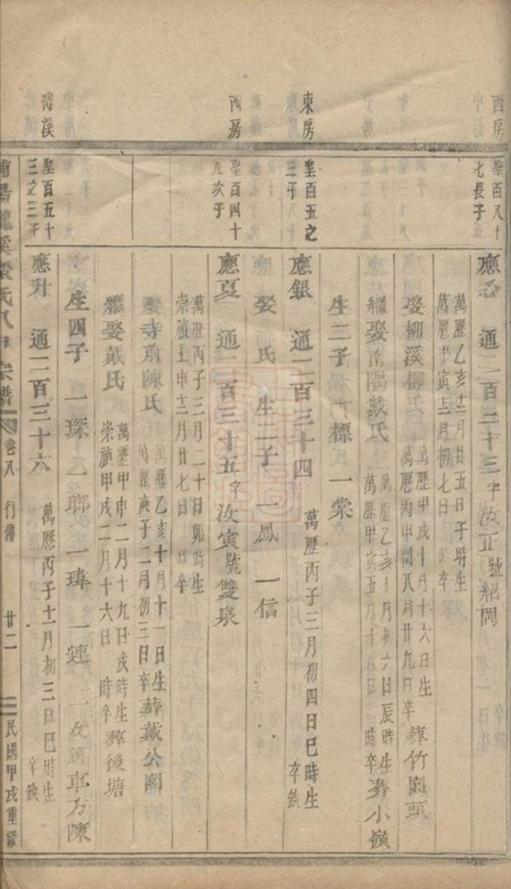 西房
聖百八十
七長子
應
通二百三十三 字汝正 號紹岡
萬歷乙亥十二月廿五日子時生
娶柳溪柳氏
萬歷甲戌十月十六日生
萬歷丙申八月廿九日卒
葬竹園頭
繼娶南隅戴氏
萬歷乙亥十月初六日辰時生
萬歷甲寅五月十
葬小嶺
生二子 一標 一棠
東房
聖百五之
三子
應銀 通二百三十四
萬歷丙子三月初四日巳時生
卒缺
娶 氏 生二子 一鳳 一信
西房
聖百四十
九次子
應夏 通二百三十五 字汝寅 號雙泉
萬歷丙子三月二十日卯時生
崇禎壬申十二月廿七日 卒
娶寺前陳氏
萬歷乙亥十月十一日生
萬歷庚子二月初三日卒
葬戴公園
繼娶戴氏
萬歷甲申二月十九日戌時生
崇禎甲戌二月十六日 時卒
葬後塘
生四子 一琛 乙瑯 一瑋 一璉 一女適車方陳
聖百五十
三之三子
應升 通二百三十六
萬歷丙子十二月初三日巳時生
卒缺
溪 氏 宗譜
卷八
行傳
廿二
民國甲戌重修